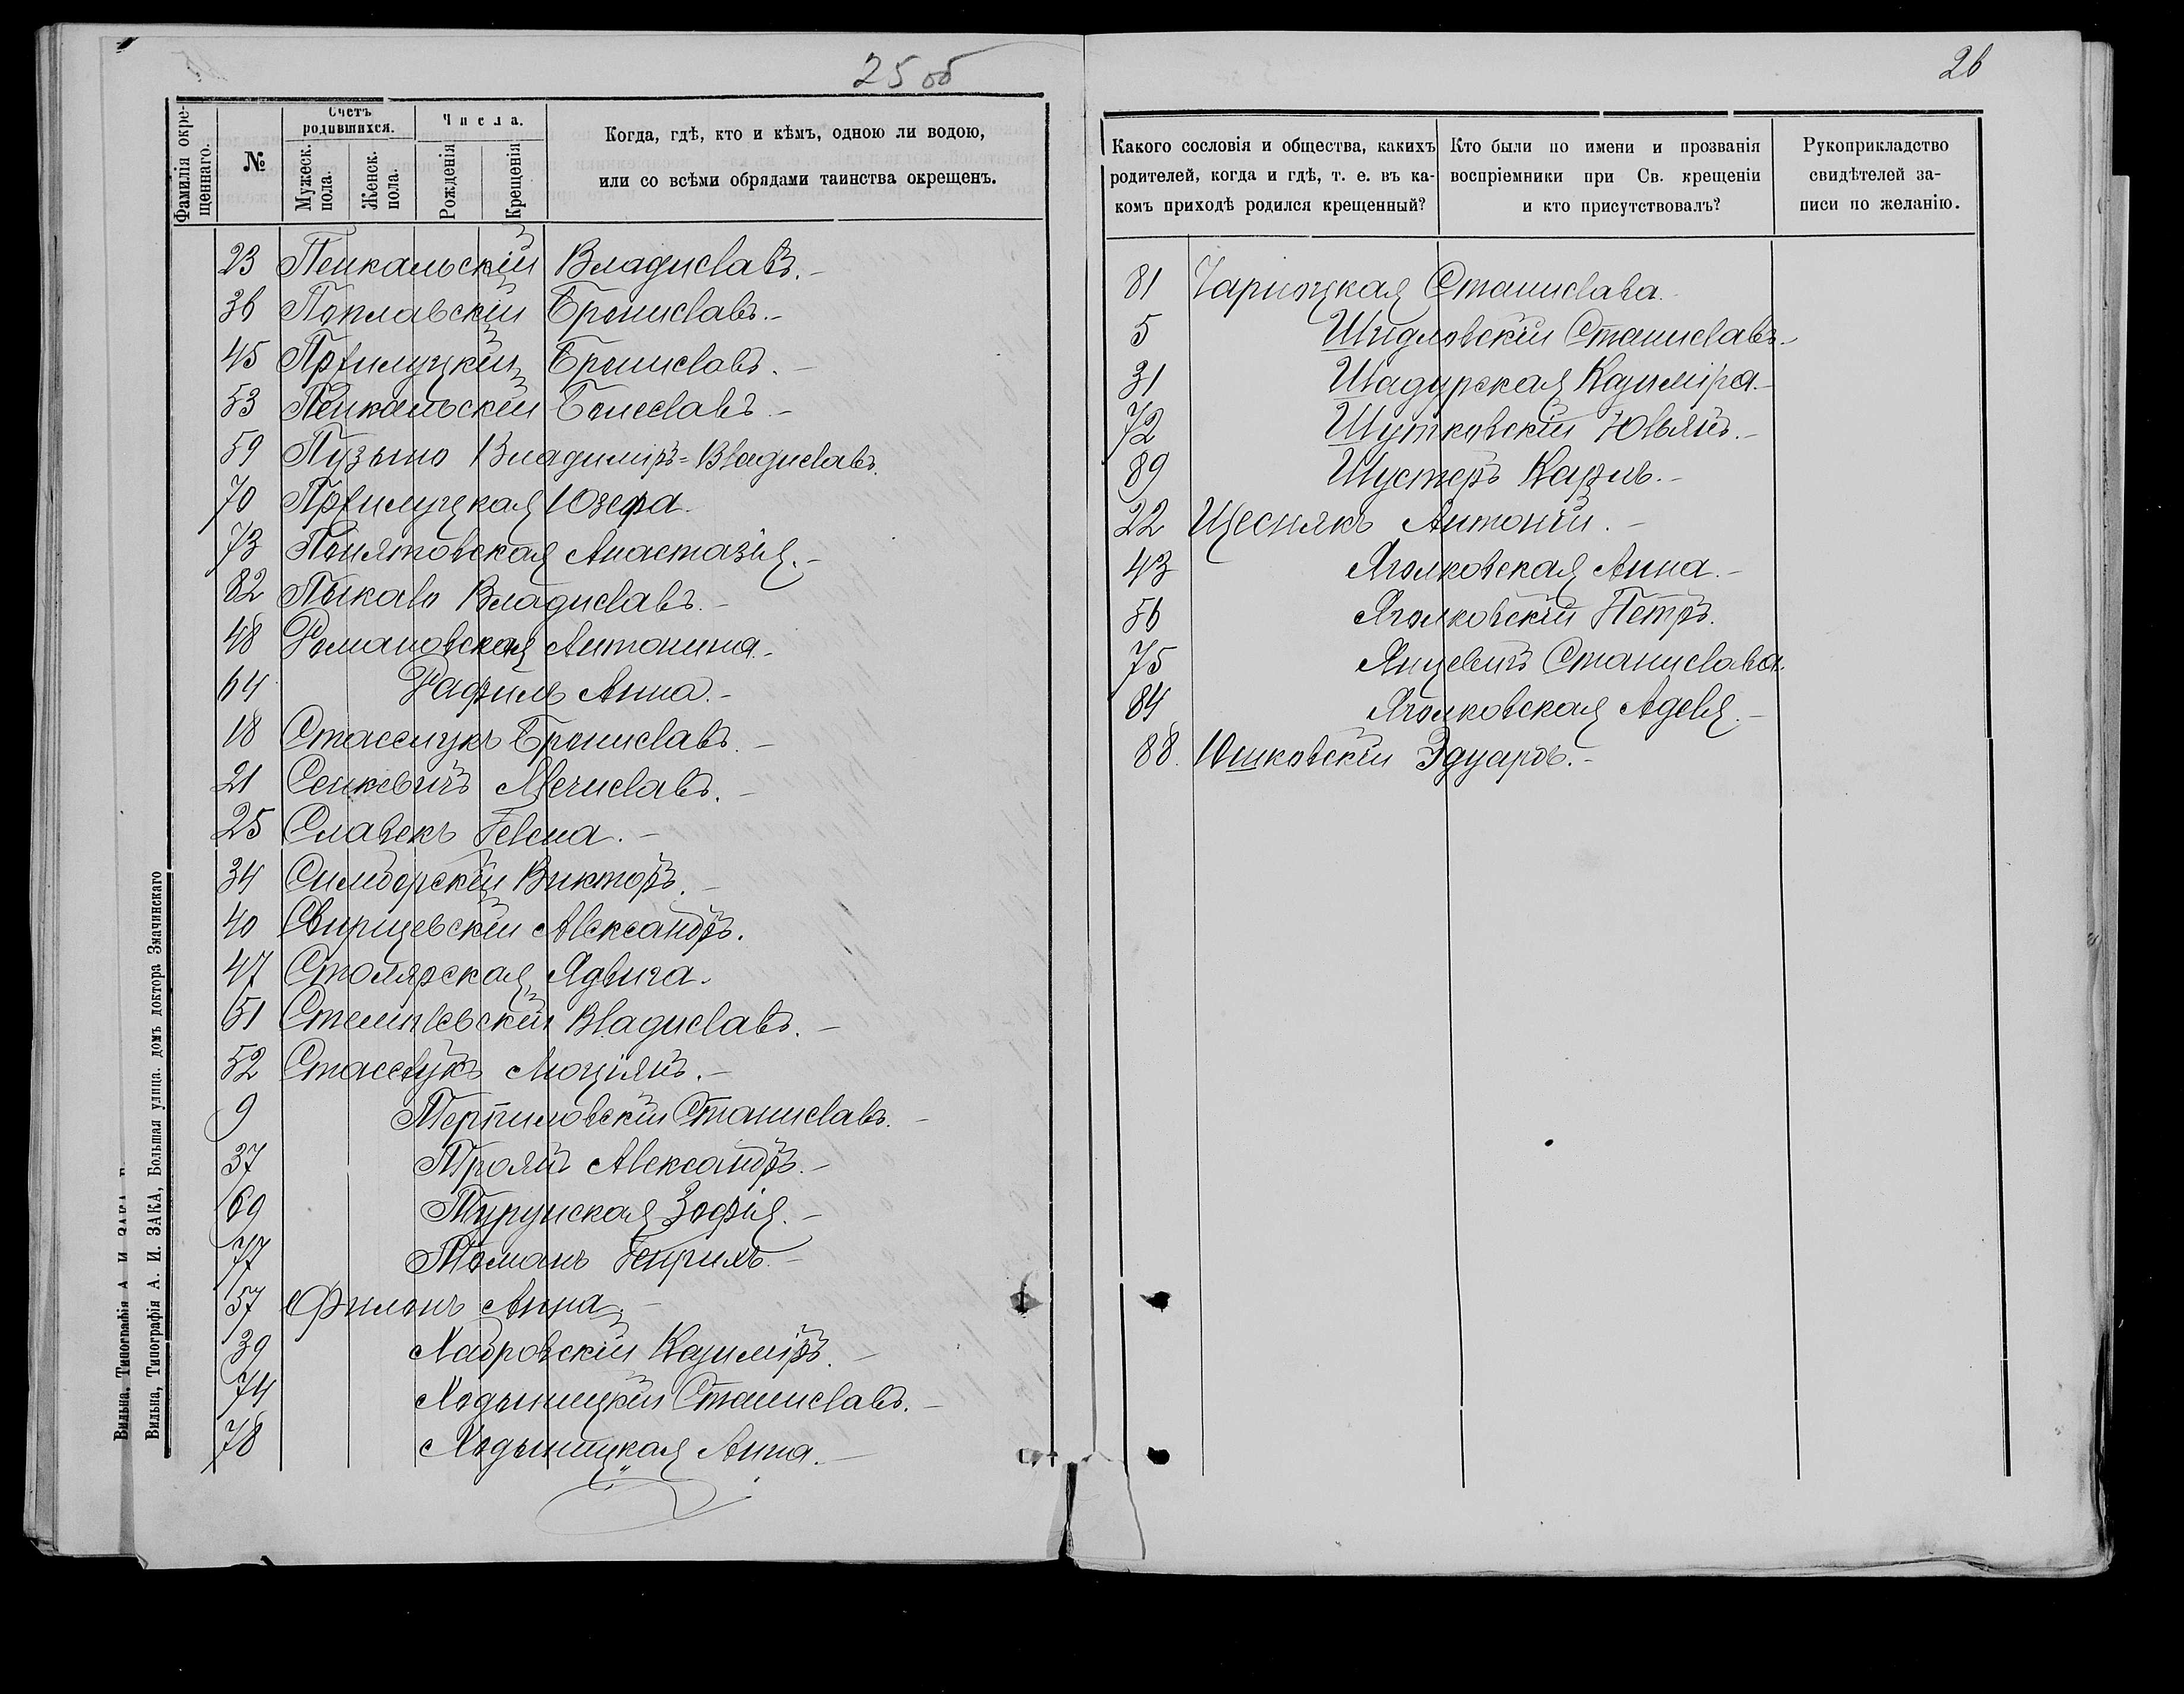 25 об
Фамилія окрещеннаго.
№
Счетъ родившихся.
Мужеск. пола.
Женск. пола.
Числа.
Рожденія
Крещенія
Когда, гдѣ, кто и кѣмъ, одною ли водою,
или со всѣми обрядами таинства окрещенъ.
23 Пенкальскій Владиславъ.-
36 Поплавскій Брониславъ.-
45 Пржилуцкій Брониславъ.-
53 Пенкальскій Болеславъ.-
59 Пузыно Владиміръ=Владиславъ.
70 Пржилуцкая Юзефа.
73 Понятовская Анастазія.-
82 Пыкало Владиславъ.-
48 Романовская Антонина.-
64 Рафилъ Анна.-
18 Стасслукъ Брониславъ.-
21 Сенкевичъ Мечиславъ.-
25 Славекъ Гелена.-
34 Симборскій Викторъ.-
40 Свирщевскій Александръ.
47 Столярская Ядвига.-
51 Стемплевскій Владиславъ.-
52 Стасслукъ Люціянъ.-
9 Терпиловскій Станиславъ.-
37 Троянъ Александръ.-
69 Турунская Зофія.-
77 Томанъ Генрихъ.-
57 Филонъ Анна.-
39 Хабровскій Казиміръ.-
74 Ходыницкій Станиславъ.-
78 Ходыницкая Анна.-
Вильна, Типографія А. И. ЗАКА
Вильна, Типографія А. И. ЗАКА, Большая улица. домъ доктора Змачинскаго
26
Какого сословія и общества, какихъ
родителей, когда и гдѣ, т. е. въ ка-
комъ приходѣ родился крещенный?
Кто были по имени и прозванія
воспріемники при Св. крещеніи
и кто присутствовалъ?
Рукоприкладство
свидѣтелей за-
писи по желанію.
81 Чарноцкая Станислава.-
5 Шидловскій Станиславъ.-
31 Шадурская Казиміра.-
72 Шутковскій Юльянъ.-
89 Шустеръ Карлъ.-
22 Щеснякъ Антоній.-
43 Яголковская Анна.-
56 Яголковскій Петръ.
75 Янцевичъ Станислава.
84 Яголковская Адель.-
88. Юшковскій Эдуардъ.-